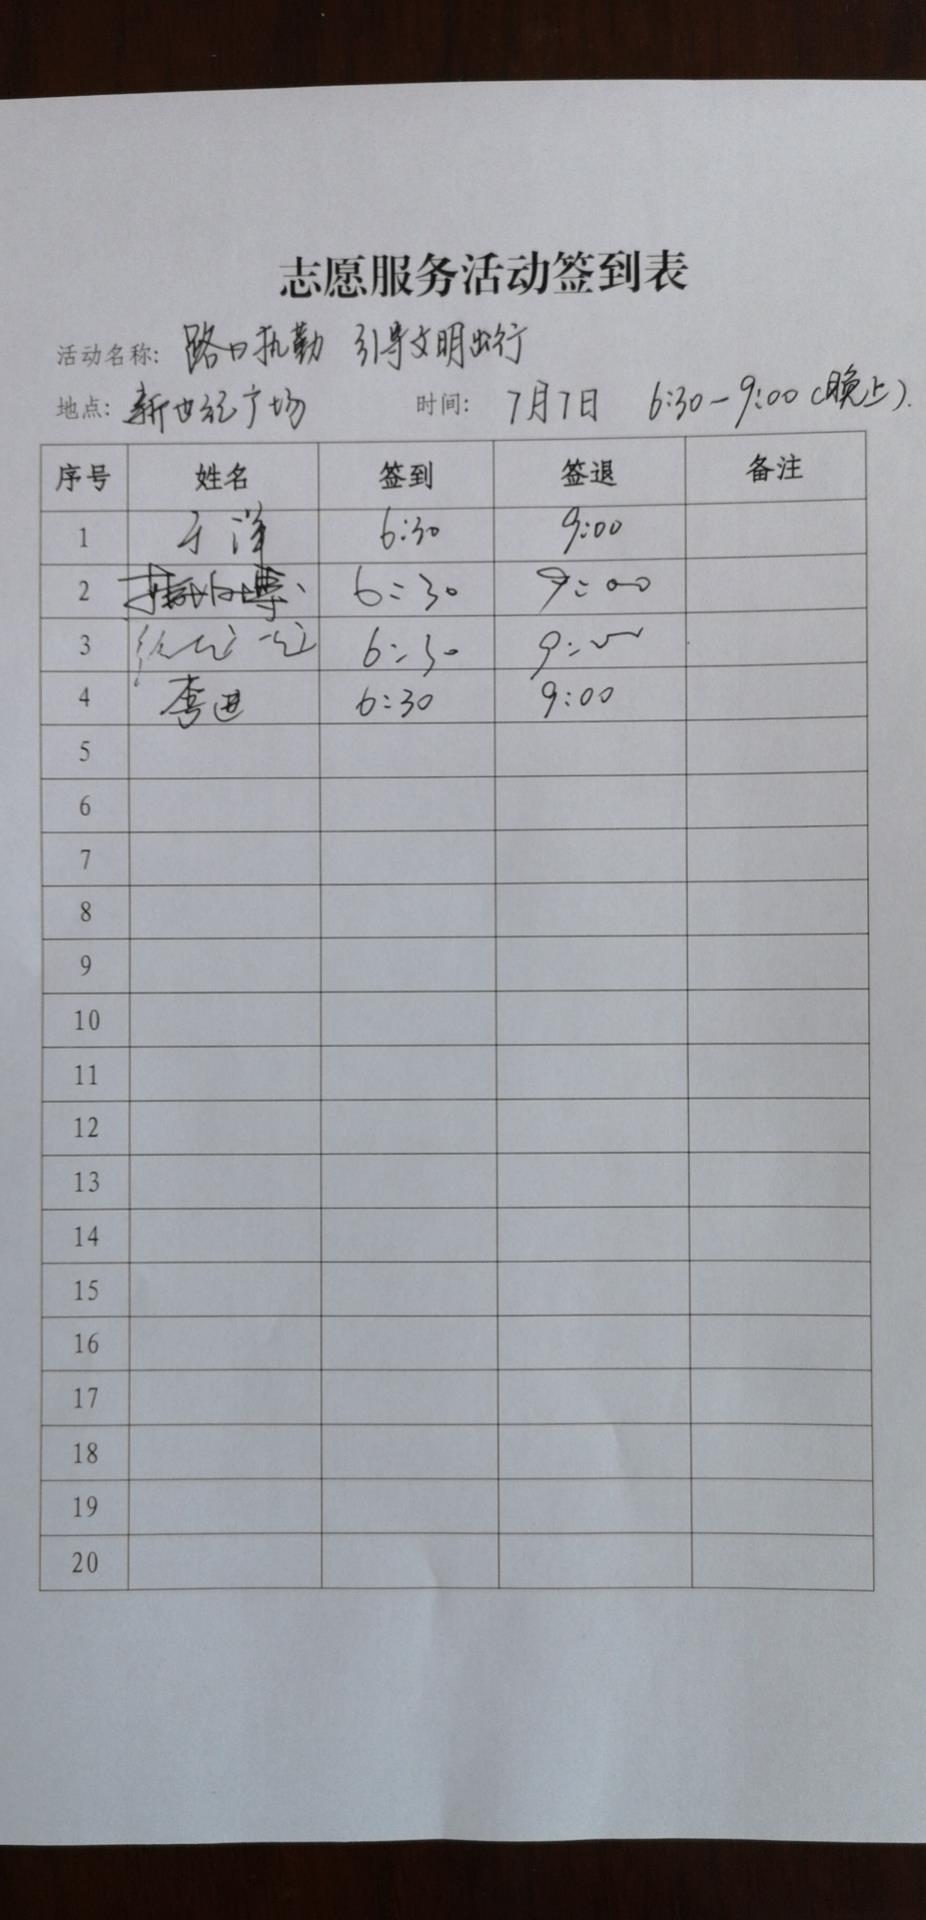 志愿服务活动签到表
活动名称: 路口执勤 引导文明出行
地点: 新世纪广场 时间: 7月7日 6:30-9:00(晚上).
序号 姓名 签到 签退 备注
1 于洋 6:30 9:00
2 6:30 9:00
3 6:30 9:00
4 李进 6:30 9:00
5
6
7
8
9
10
11
12
13
14
15
16
17
18
19
20